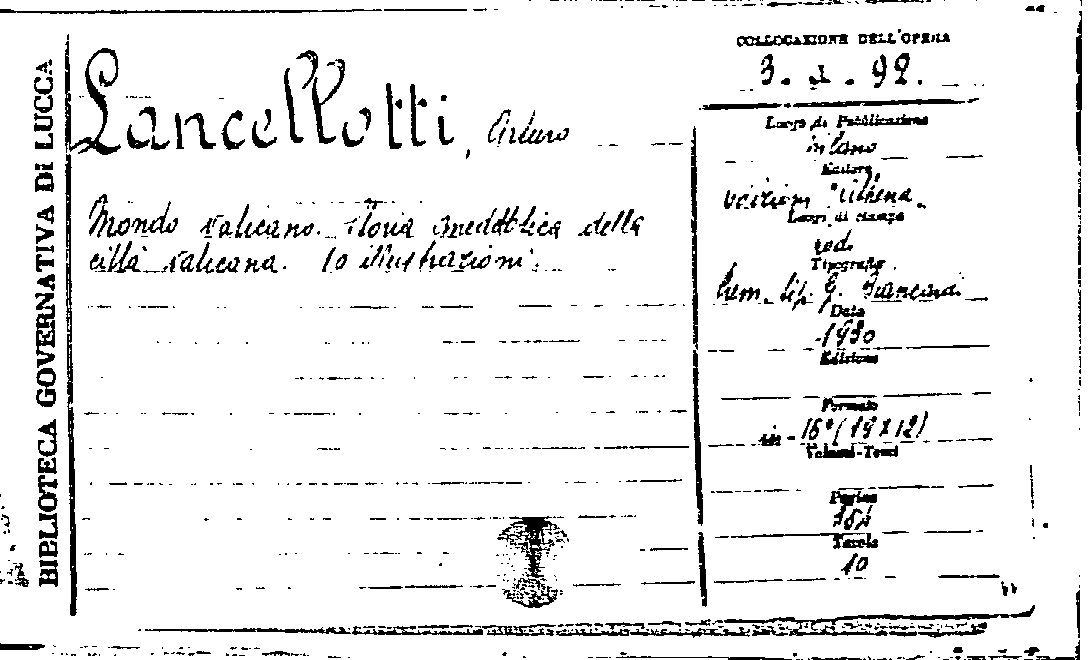 BIBLIOTECA GOVERNATIVA DI LUCCA
Lancellotti, Arturo
Mondo vaticano. Storia aneddotica della
città vaticana. 10 illustrazioni.
COLLOCAZIONE DELL'OPERA
3. 1. 92.
Luogo di Pubblicazione
Milano
Editore
Athena.
Luogo di stampa
Tipografo
tip. G.
Data
1930
Edizione
Formato
in-16° (19x12)
Volumi-Tomi
Pagine
Tavole
10